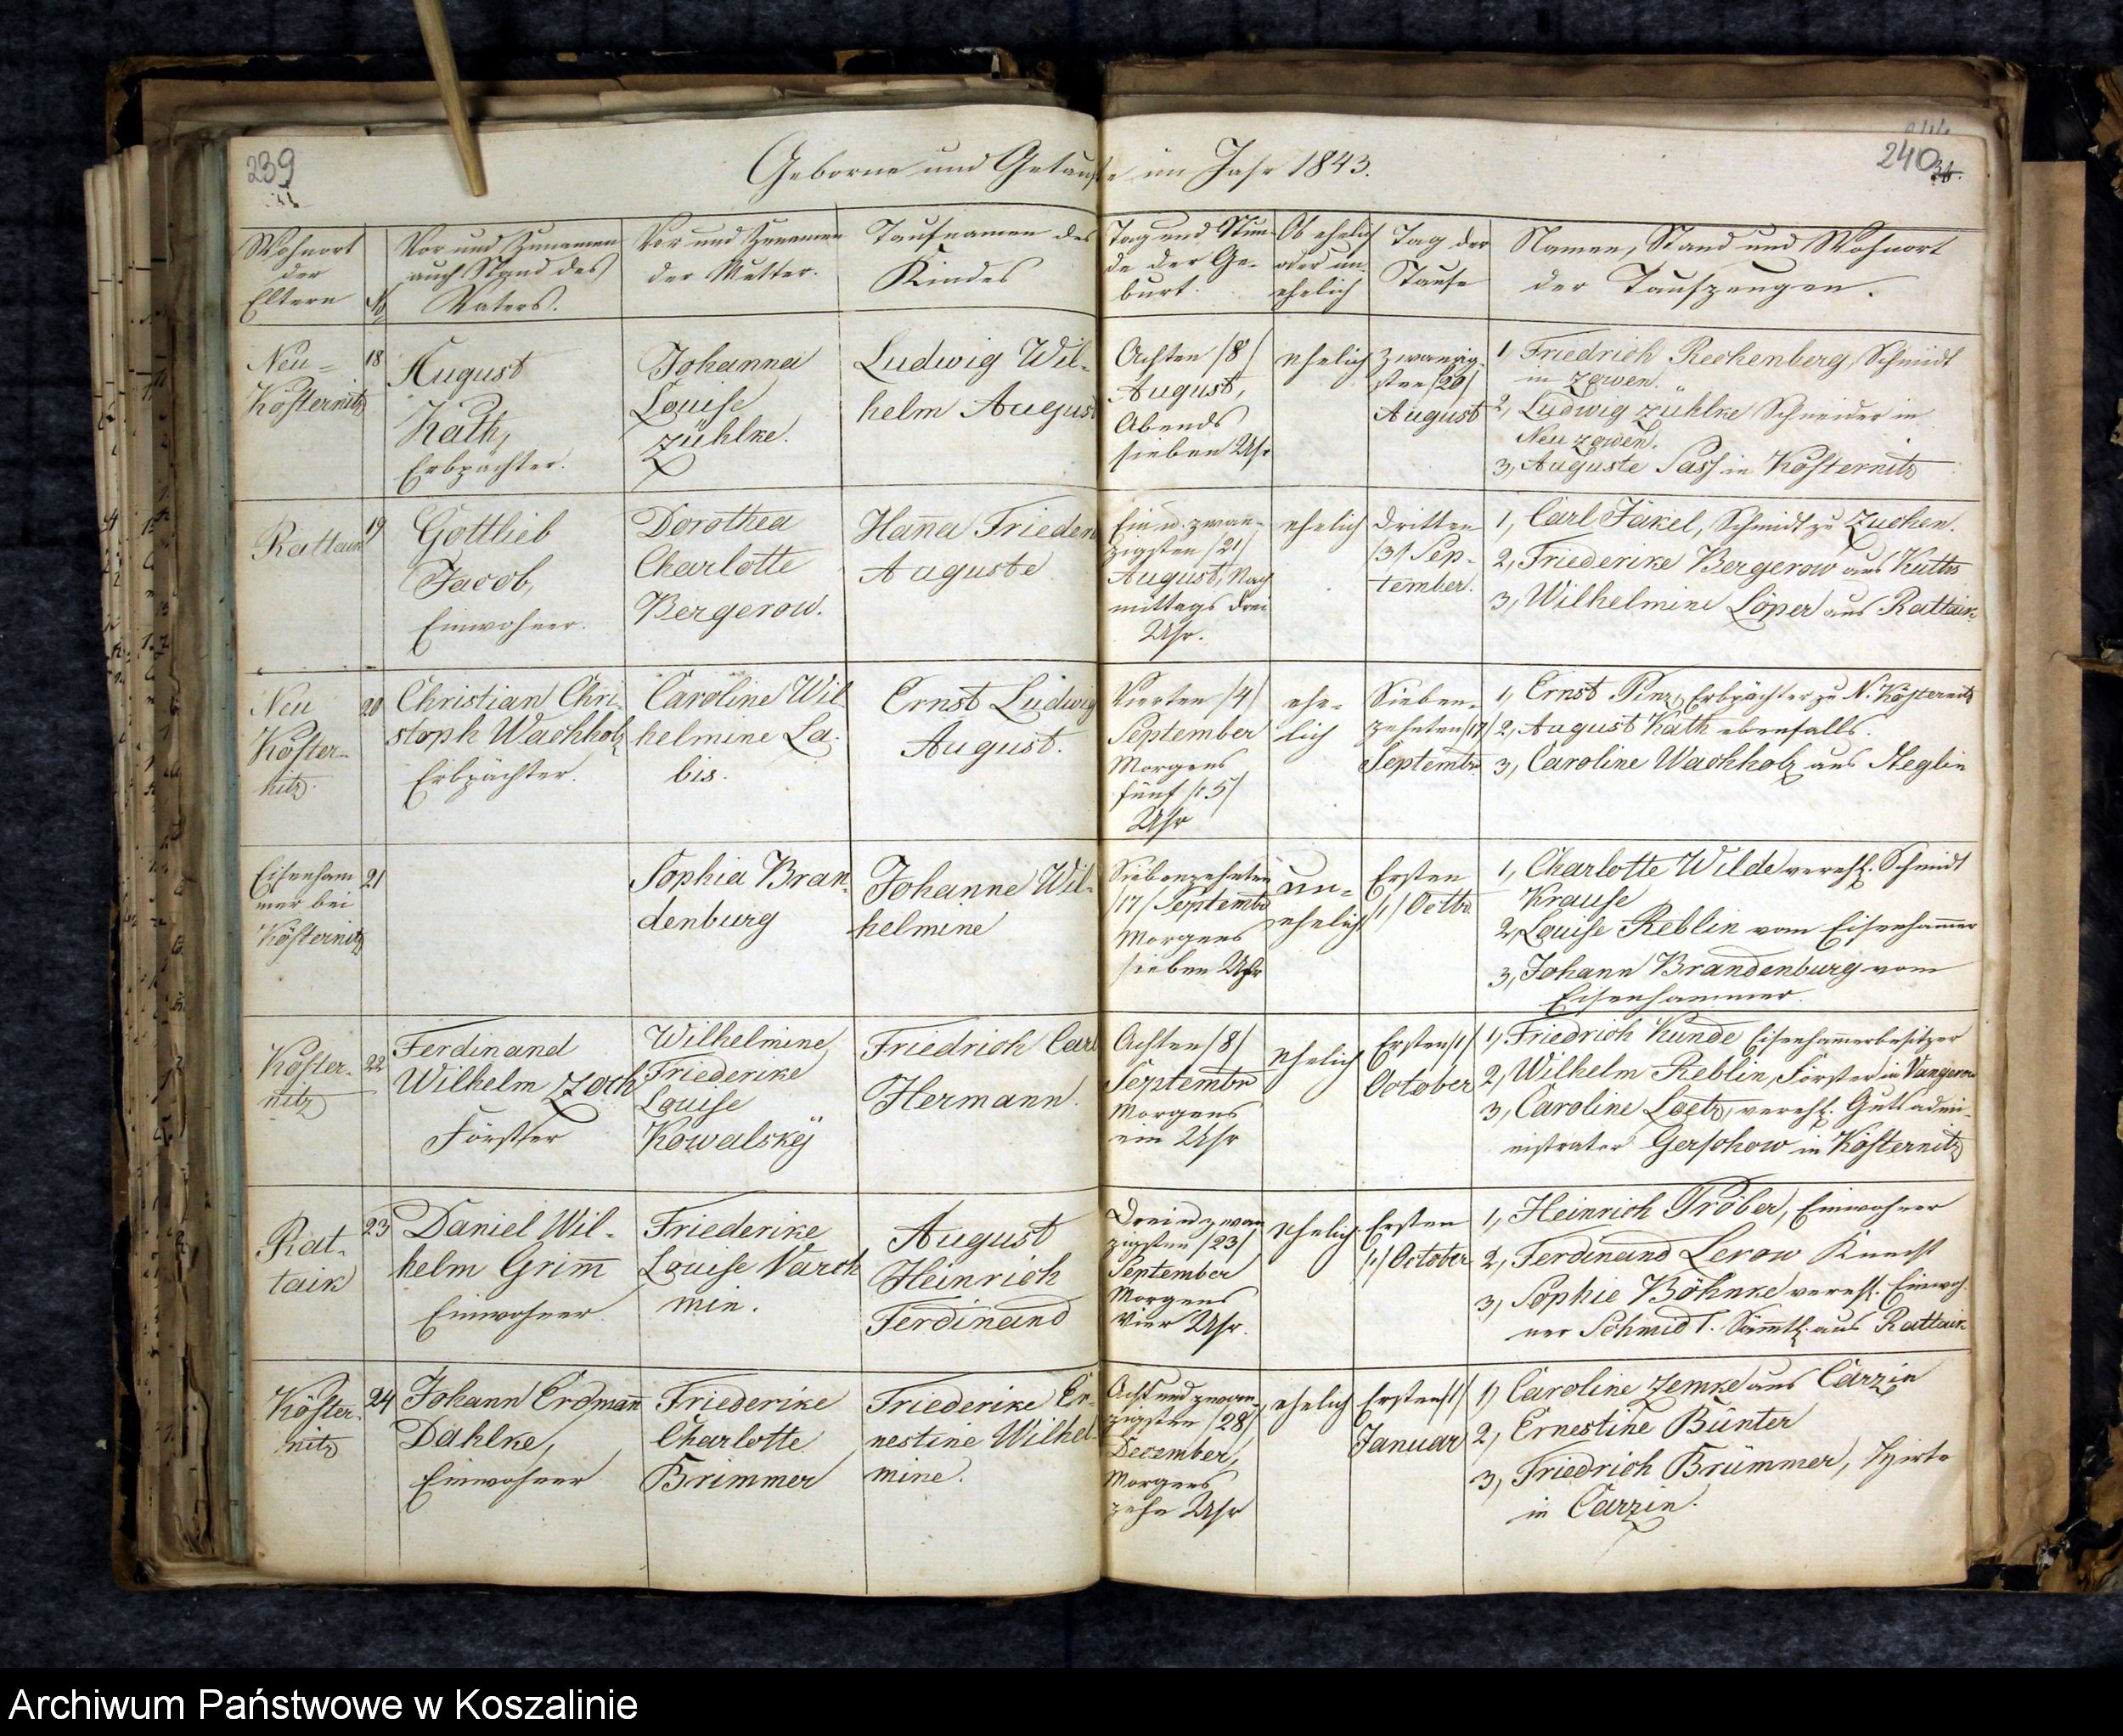 239
240
34.
Geborne und Getaufte im Jahr 1843.
Wohnort
der
Eltern
No
Vor und Zunamen
auch Stand des
Vaters.
Vor und Zunamen
der Mutter.
Taufnamen des
Kindes
Tag und Stun-
de der Ge-
burt.
Ob ehelich
oder un-
ehelich
Tag der
Taufe
Namen, Stand und Wohnort
der Taufzeugen.
Neu-
Kösternitz
18
August
Kath,
Erbpächter.
Johanna
Louise
Zühlke.
Ludwig Wil-
helm August
Achten /8/
August,
Abends
sieben Uhr
ehelich
Zwanzig-
sten /20/
August
1, Friedrich Rechenberg, Schmidt
in Zowen.
2, Ludwig Zühlke Schneider in
Neu Zowen.
3, Auguste Sass in Kösternitz
Rattaik
19
Gottlieb
Jacob,
Einwohner.
Dorothea
Charlotte
Bergerow.
Hanna Friedericke
Auguste
Ein u. zwan-
zigsten /21/
August, Nach
mittags drei
Uhr.
ehelich
dritten
/3/ Sep-
tember.
1, Carl Jäkel, Schmidt zu Zuchen.
2, Friederike Bergerow aus
3, Wilhelmine Löper aus Rattaik
Neu
Köster-
nitz.
20
Christian Chri-
stoph Wachholz
Erbpächter.
Caroline Wil-
helmine La-
bis.
Ernst Ludwig
August.
Vierten /4/
September
Morgens
fünf /5/
Uhr
ehe-
lich
Sieben-
zehnten /17/
Septembr.
1, Ernst Erbpächter zu N. Kösternitz
2, August Kath ebenfalls.
3, Caroline Wachholz aus Steglin
Eisenham
mer bei
Kösternitz
21
Sophia Bran-
denburg
Johanne Wil-
helmine
Siebenzehnten
/17/ Septembr
Morgens
sieben Uhr
un-
ehelich
Ersten
/1/ Octbr.
1, Charlotte Wilde verehl. Schmidt
Krause
2, Louise Reblin vom Eisenhammer
3, Johann Brandenburg vom
Eisenhammer.
Köster-
nitz
22
Ferdinand
Wilhelm Zoch
Förster
Wilhelmine
Friederike
Louise
Kowalsky
Friedrich Carl
Hermann.
Achten /8/
Septembr
Morgens
ein Uhr
ehelich
Ersten /1/
October
1, Friedrich Kunde Eisenhammerbesitzer
2, Wilhelm Reblin, Förster in Vangerow
3, Caroline Loetz, verehl. Gutsadmi-
nistrator Gerschow in Kösternitz
Rat-
taik
23
Daniel Wil-
helm Grimm
Einwohner.
Friederike
Louise Varch
min.
August
Heinrich
Ferdinand
Dreiu zwan
zigsten /23/
September
Morgens
vier Uhr.
ehelich
Ersten
/1/ October
1, Heinrich Tröber, Einwohner
2, Ferdinand Lerow Knecht
3, Sophie Böhnke verehl. Einwoh-
ner Schmidt. Sämtl. aus Rattaik
Köster-
nitz
24
Johann Erdmann
Dahlke,
Einwohner
Friederike
Charlotte
Brimmer
Friederike Er-
nestine Wilhel-
mine.
Acht und zwan-
zigsten /28/
Dezember,
Morgens
zehn Uhr
ehelich
Ersten /1/
Januar
1, Caroline Zemke aus Carzin
2, Ernestine Bünter
3, Friedrich Brümmer, Hirte
in Carzin.
Archiwum Państwowe w Koszalinie